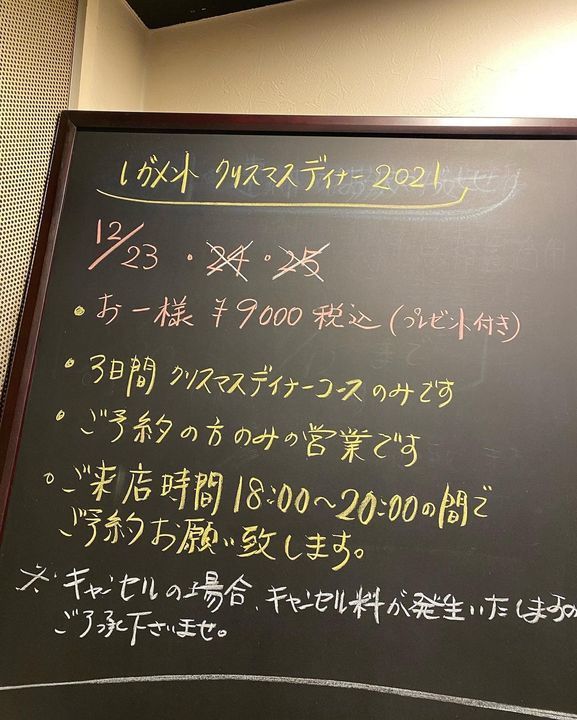 レガメント クリスマスディナー 2021
12/23・24・25
・お一様 ¥9000 税込 (プレゼント付き)
・3日間 クリスマスディナーコースのみです
・ご予約の方のみの営業です
・ご来店時間 18:00〜20:00の間で
ご予約お願い致します。
※キャンセルの場合、キャンセル料が発生いたしますの
ご了承下さいませ。